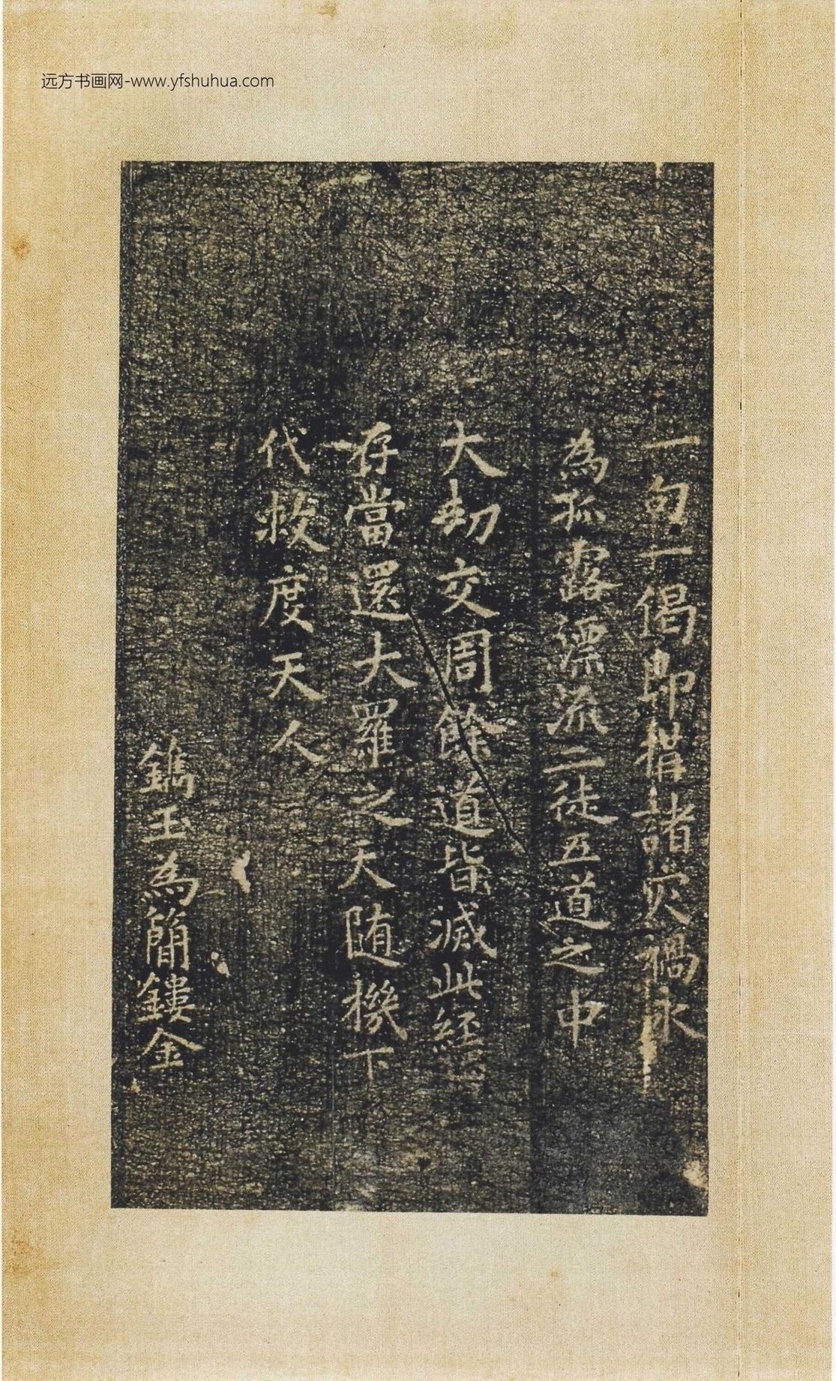 远方书画网-www.yfshuhua.com
一句一偈即構諸灾禍永
為孤露漂流三徒五道之中
大劫交周餘道皆滅此經
存當還大羅之天随機下
代救度天人
鐫玉為簡鏤金